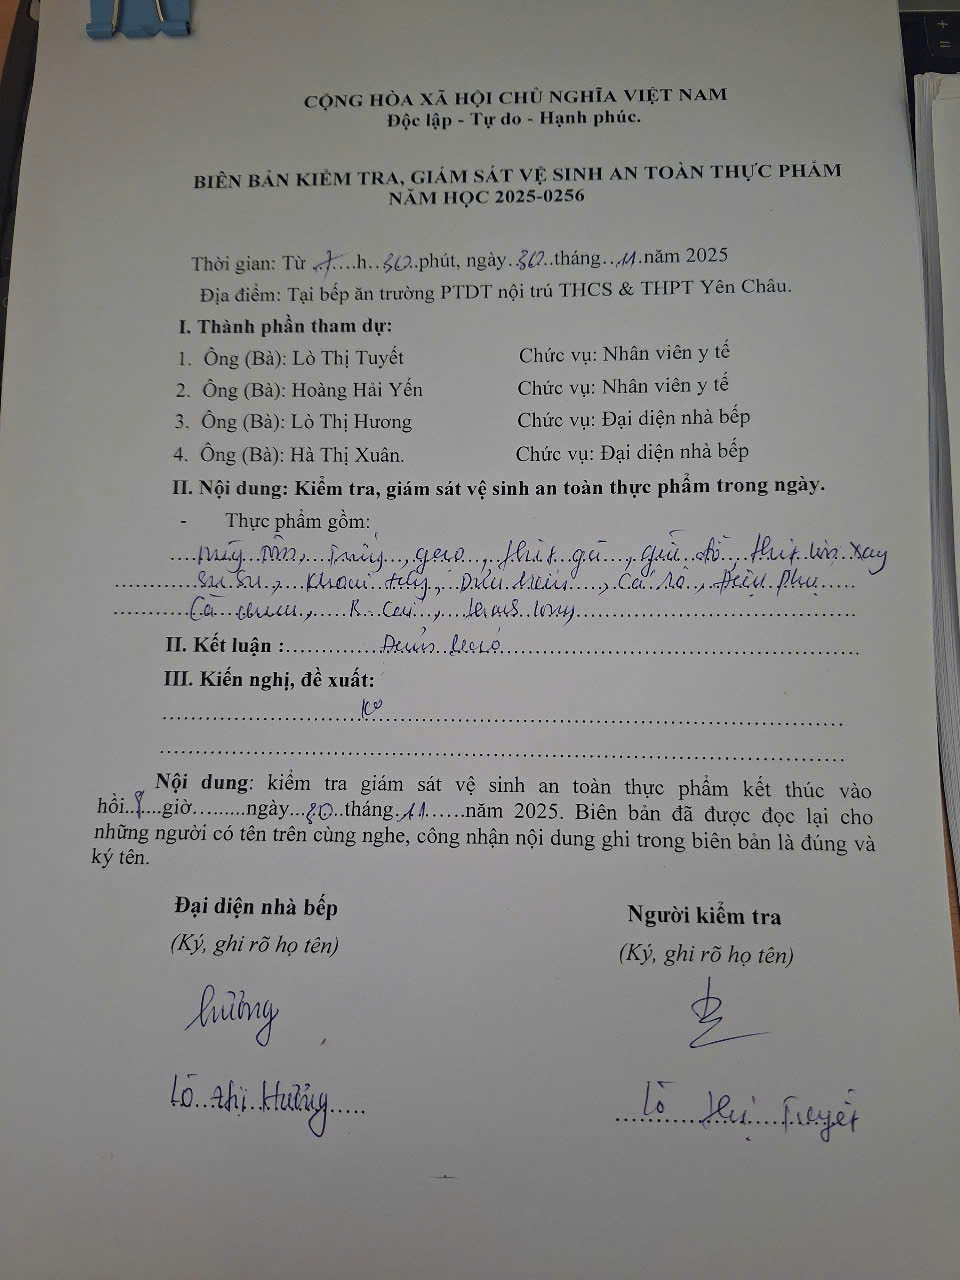 CỘNG HÒA XÃ HỘI CHỦ NGHĨA VIỆT NAM
Độc lập - Tự do - Hạnh phúc.
BIÊN BẢN KIỂM TRA, GIÁM SÁT VỆ SINH AN TOÀN THỰC PHẨM
NĂM HỌC 2025-0256
Thời gian: Từ .7....h..30..phút, ngày..30..tháng..11.năm 2025
Địa điểm: Tại bếp ăn trường PTDT nội trú THCS & THPT Yên Châu.
I. Thành phần tham dự:
1. Ông (Bà): Lò Thị Tuyết Chức vụ: Nhân viên y tế
2. Ông (Bà): Hoàng Hải Yến Chức vụ: Nhân viên y tế
3. Ông (Bà): Lò Thị Hương Chức vụ: Đại diện nhà bếp
4. Ông (Bà): Hà Thị Xuân. Chức vụ: Đại diện nhà bếp
II. Nội dung: Kiểm tra, giám sát vệ sinh an toàn thực phẩm trong ngày.
- Thực phẩm gồm:
Mỳ tôm, trứng, gạo, thịt gà, giá đỗ, thịt lợn xay
Su su, khoai tây, cà rốt, Đậu phụ
Cà chua, R. cải
II. Kết luận : Đảm bảo
III. Kiến nghị, đề xuất:
Ko
Nội dung: kiểm tra giám sát vệ sinh an toàn thực phẩm kết thúc vào
hồi..8....giờ.........ngày...30..tháng.11......năm 2025. Biên bản đã được đọc lại cho
những người có tên trên cùng nghe, công nhận nội dung ghi trong biên bản là đúng và
ký tên.
Đại diện nhà bếp Người kiểm tra
(Ký, ghi rõ họ tên) (Ký, ghi rõ họ tên)
Hương
Lò Thị Hương Lò Thị Tuyết